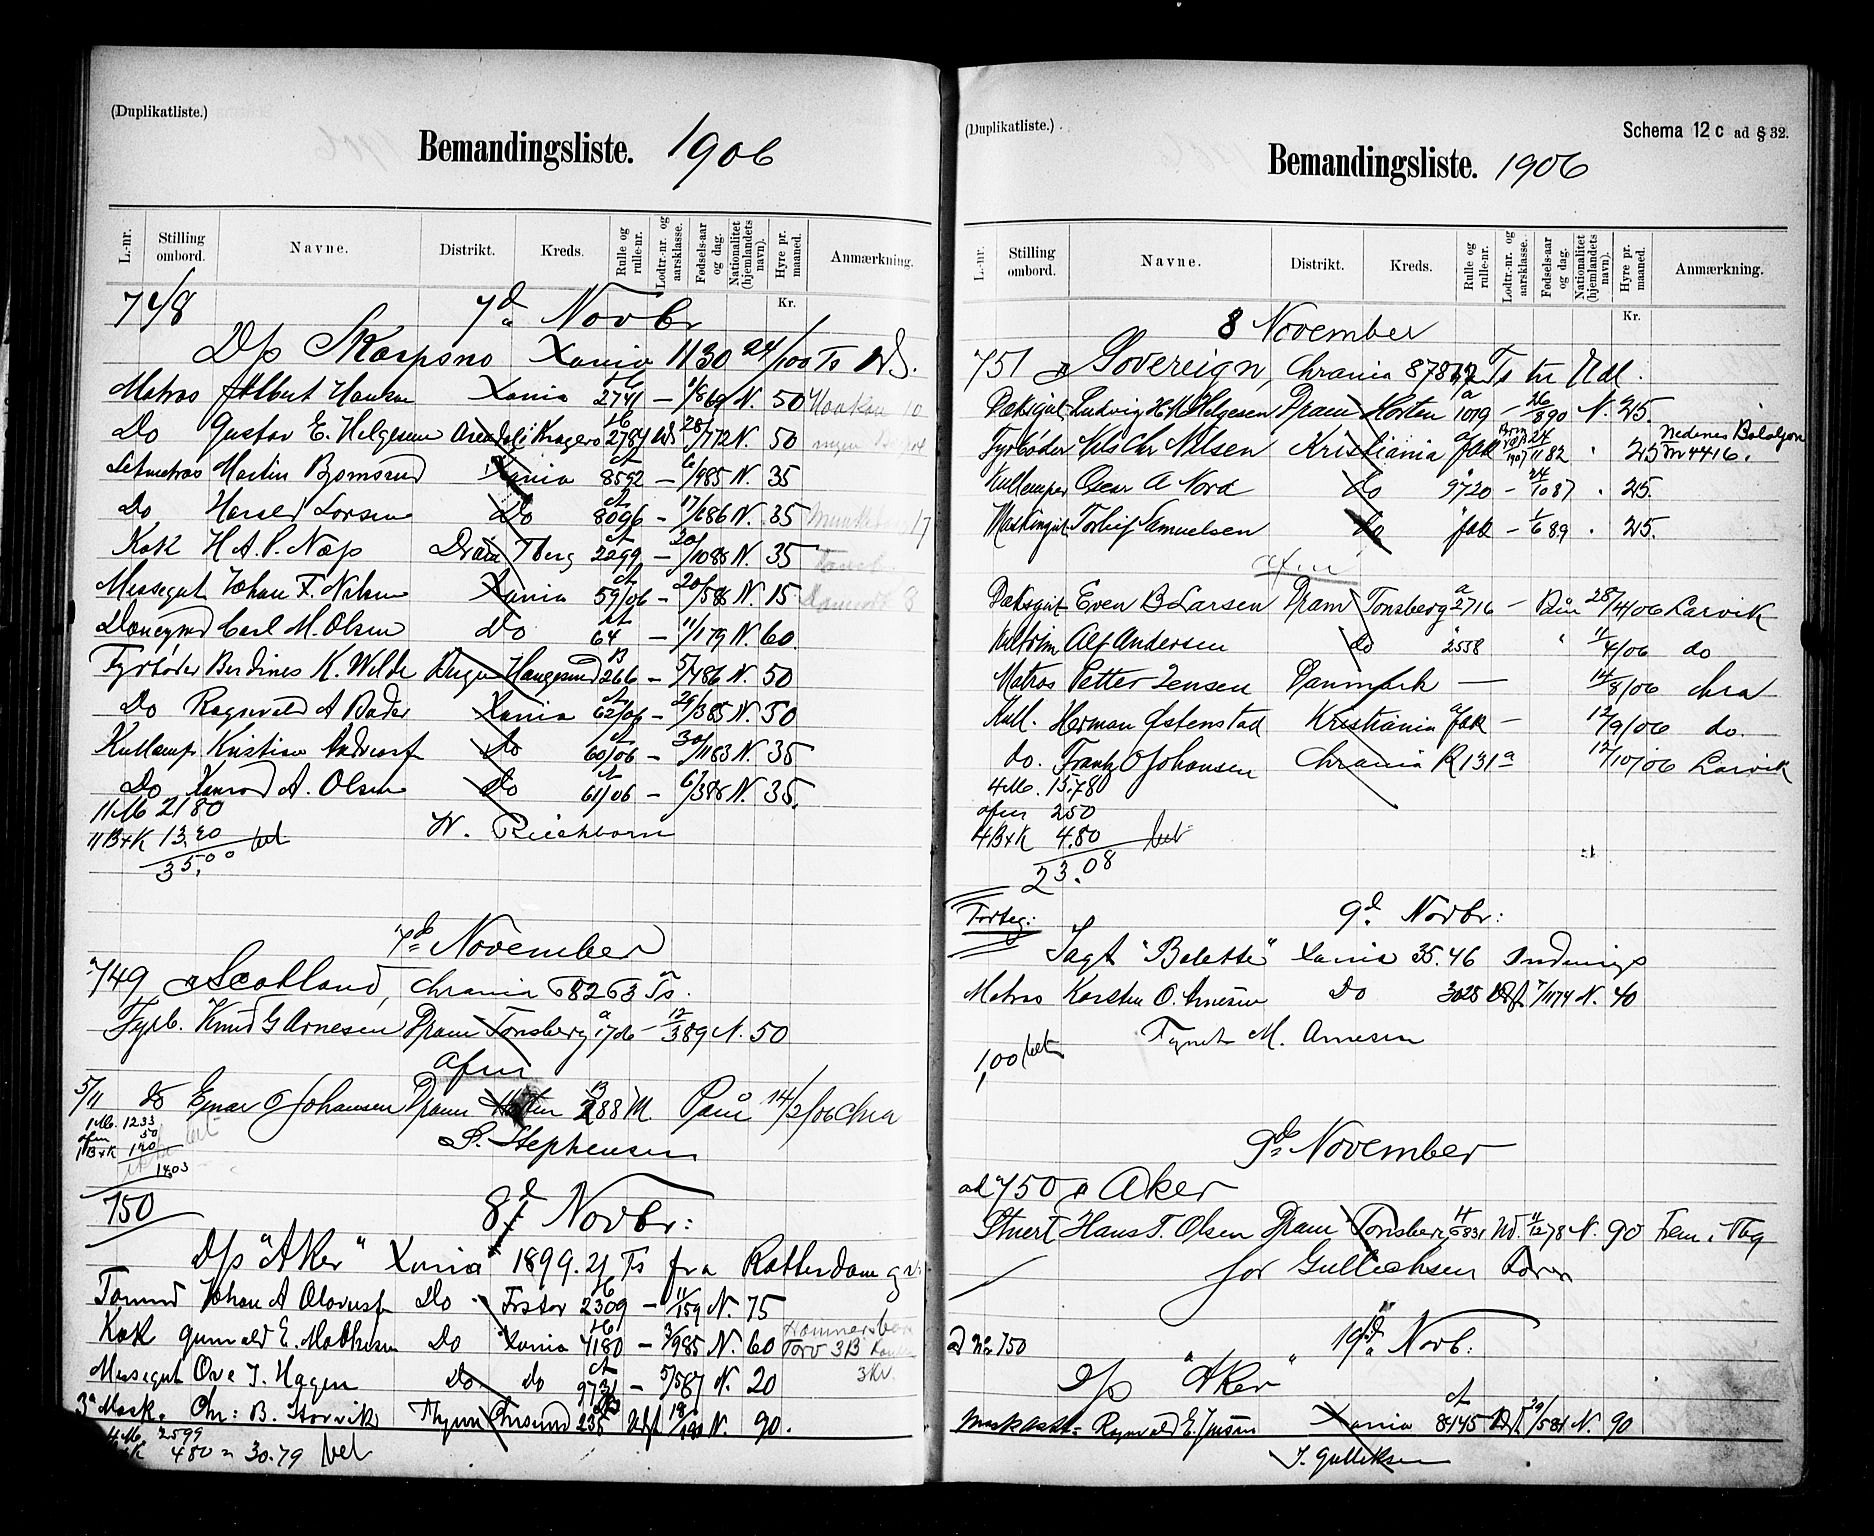 (Duplikatliste.)
Bemandingsliste. 1906
L.-nr. Stilling ombord. Navne. Distrikt. Kreds. Rulle og rulle-nr. Lodtr.-nr. og aarsklasse. Fødsels-aar og dag. Nationalitet (hjemlandets navn). Hyre pr. maaned. Anmærkning.
Kr.
748 7d Novbr
D/s Skarpsno Xania 1130 24/100 Ts
Matros Albert Hansen Xania 2741 — 1/8 69 N. 50
Do Gustav E. Helgesen Arendal Kragerø 278 28/7 72 N. 50
Letmatros Martin Bjørnsrud Xania 8592 — 6/9 85 N. 35
Do Harald Larsen Do 8096 — 17/6 86 N. 35
Kok H. A. P. Næss Dram Tberg 2299 — 20/10 88 N. 35
Messegut Johan F. Nilsen Xania 59/06 — 20/5 86 N. 15
Donkeymd Carl M. Olsen Do 64 — 11/1 79 N. 60
Fyrbøder Berdines K. Wilde Bergen Haugesund 266 — 5/4 86 N. 50
Do Ragnvald A Bader Xania 62/06 — 29/3 85 N. 50
Kullemp Kristian Andreass Do 60/06 — 30/11 83 N. 35
Do Konrad A. Olsen Do 61/06 — 6/3 88 N. 35.
11 M 21 80
11 B+K 13.20 bet
35.00
7de November
749 Scotland, Chrania 682 63 Ts.
Fyrb. Knud G Arnesen Dram Tønsberg a 1706 — 12/3 89 N. 50
afm
5/11 do Einar O Johansen Dram Horten 288 M Paa 14/2/06 Chra
1 M. 12 33
afm 50
1 B+K 1.20
14.03
S. Stephensen
750 8d Novbr:
D/s "Aker" Xania 1899. 21 Ts fra Rotterdam
Tømmd Johan A Olavess Do 2309 — 11/1 59 N. 75
Kok Gunvald E. Mathisen Do Xania 4180 — 3/9 85 N. 60
Messegut Ove J. Hagen Do do 9731 — 5/5 87 N. 20
3die Mask. Chr: B. Storvik Thjem Chrsund 235 N. 90.
4 M. 25 99
480 = 30.79 bet
(Duplikatliste.)
Schema 12 c ad § 32.
Bemandingsliste. 1906
L.-nr. Stilling ombord. Navne. Distrikt. Kreds. Rulle og rulle-nr. Lodtr.-nr. og aarsklasse. Fødsels-aar og dag. Nationalitet (hjemlandets navn). Hyre pr. maaned. Anmærkning.
Kr.
8 November
751 Sovereign, Chrania 878 Ts tr Udl.
Dæksgut Ludvig H. K Helgesen Dram Horten 1019 — 26/8 90 N. 25.
Fyrbøder Nils Chr Nilsen Kristiania 24/11 82 25
Kullemper Oscar A Nord do 9720 — 24/10 87 25.
Maskingut Torleif Samuelsen do — 1/6 89 25.
afm
Dæksgut Even B Larsen Dram Tønsberg a 2716 — Paa 28/4/06 Larvik
Alf Andersen do 2558 " 11/4/06 do
Matros Petter Jensen Danmark — 14/8/06 Chra
Kull. Herman Østenstad Kristiania — 12/9/06 do.
do. Frantz O Johansen Chrania R 131 a 12/10/06 Larvik
4 M. 15.78
afm 2 50
4 B+K 4.80 bet
23.08
9d Novbr:
Forteg:
Jagt "Bolette" Xania 35.46
Matros Karsten O. Arnesen Do 3028 7/11 74 N. 40
M. Arnesen
1,00 bet
9de November
ad 750 Aker
Stuert Hans T. Olsen Dram Tønsberg 6831 11/12 78 N. 90
for Gulliksen
ad No 750 19d Novb.
D/s "Aker"
Mask asst: Ragnvald E. Jensen Xania 8445 29/5 81 N. 90
J. Gulliksen